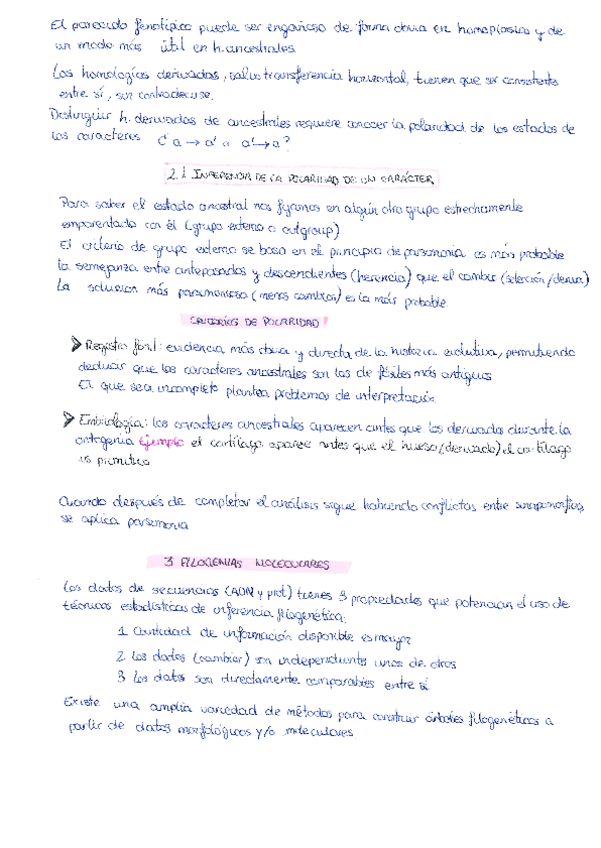 El parecido fenotípico puede ser engañoso de forma obvia en homoplasias y de
un modo más útil en h. ancestrales.
Las homologías derivadas, salvo transferencia horizontal, tienen que ser consistentes
entre sí, sin contradecirse.
Distinguir h. derivadas de ancestrales requiere conocer la polaridad de los estados de
los caracteres ¿ a → a' o a' → a?
2.1 INFERENCIA DE LA POLARIDAD DE UN CARÁCTER
Para saber el estado ancestral nos fijamos en algún otro grupo estrechamente
emparentado con él (grupo externo o outgroup)
El criterio de grupo externo se basa en el principio de parsimonia es más probable
la semejanza entre antepasados y descendientes (herencia) que el cambio (selección/deriva)
La solución más parsimoniosa (menos cambios) es la más probable
CRITERIOS DE POLARIDAD
Registro fósil: evidencia más obvia y directa de la historia evolutiva, permitiendo
deducir que los caracteres ancestrales son los de fósiles más antiguos
El que sea incompleto plantea problemas de interpretación
Embriología: los caracteres ancestrales aparecen antes que los derivados durante la
ontogenia Ejemplo el cartílago aparece antes que el hueso (derivado) el cartílago
es primitivo
Cuando después de completar el análisis sigue habiendo conflictos entre sinapomorfias,
se aplica parsimonia
3 FILOGENIAS MOLECULARES
Los datos de secuencias (ADN y prot) tienen 3 propiedades que potencian el uso de
técnicas estadísticas de inferencia filogenética:
1 Cantidad de información disponible es mayor
2 Los datos (cambios) son independiente unos de otros
3 Los datos son directamente comparables entre sí
Existe una amplia variedad de métodos para construir árboles filogenéticos a
partir de datos morfológicos y/o moleculares